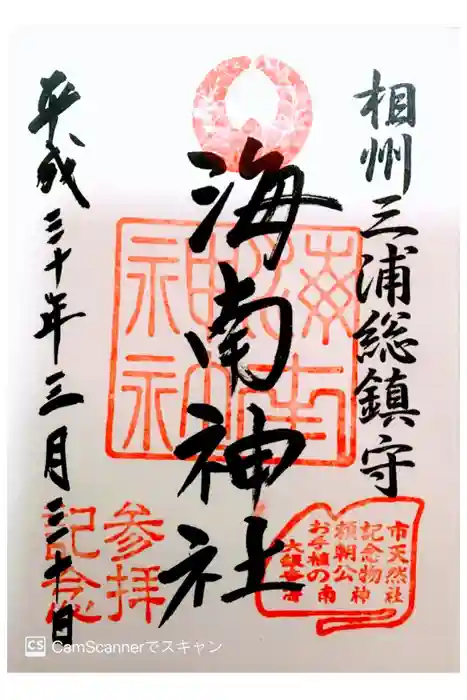 相州三浦総鎮守
海南神社
海南神社
平成三十年三月三十日
参拝
記念
市天然
記念物
頼朝公
お手植の
大銀杏
海南神社
CS CamScannerでスキャン